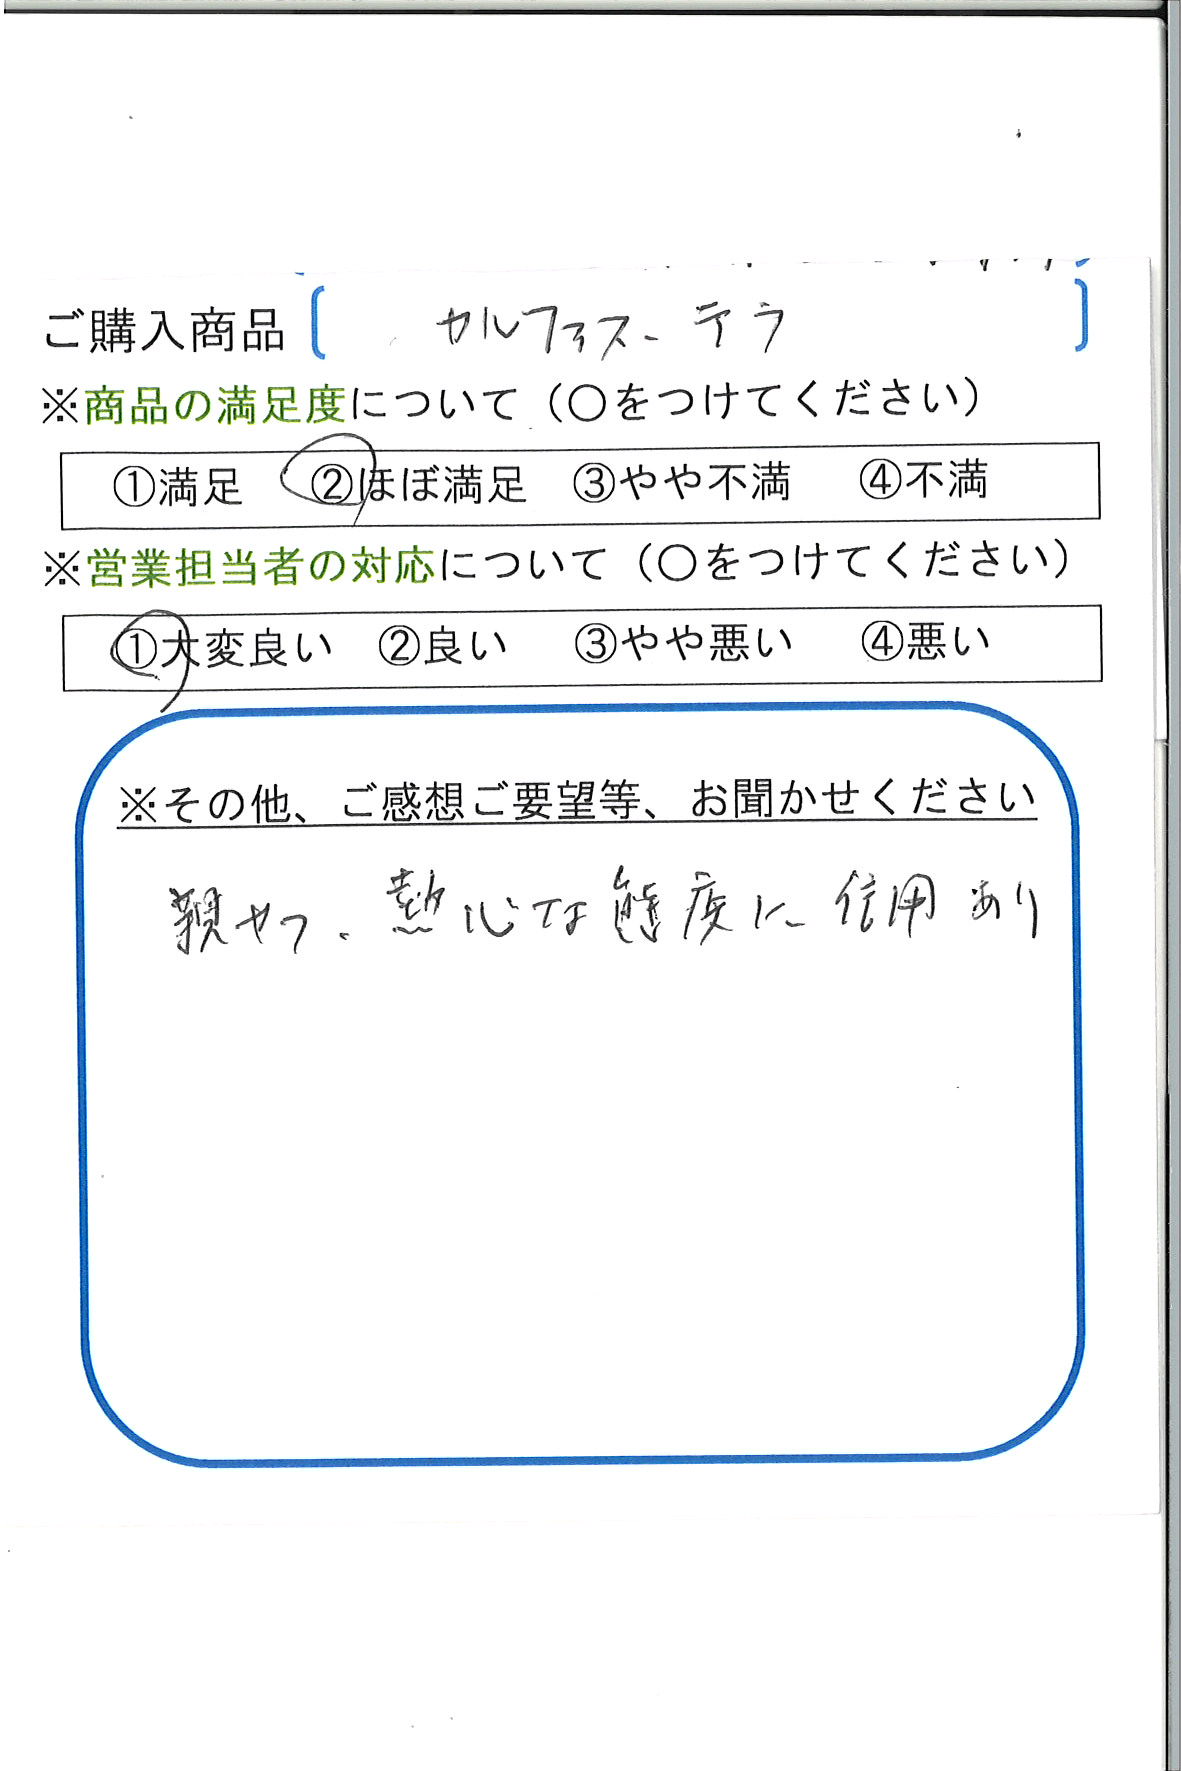 ご購入商品 [ カルファス、テラ ]
※商品の満足度について（○をつけてください）
①満足 ②ほぼ満足 ③やや不満 ④不満
※営業担当者の対応について（○をつけてください）
①大変良い ②良い ③やや悪い ④悪い
※その他、ご感想ご要望等、お聞かせください
親せつ、熱心な態度に信用あり